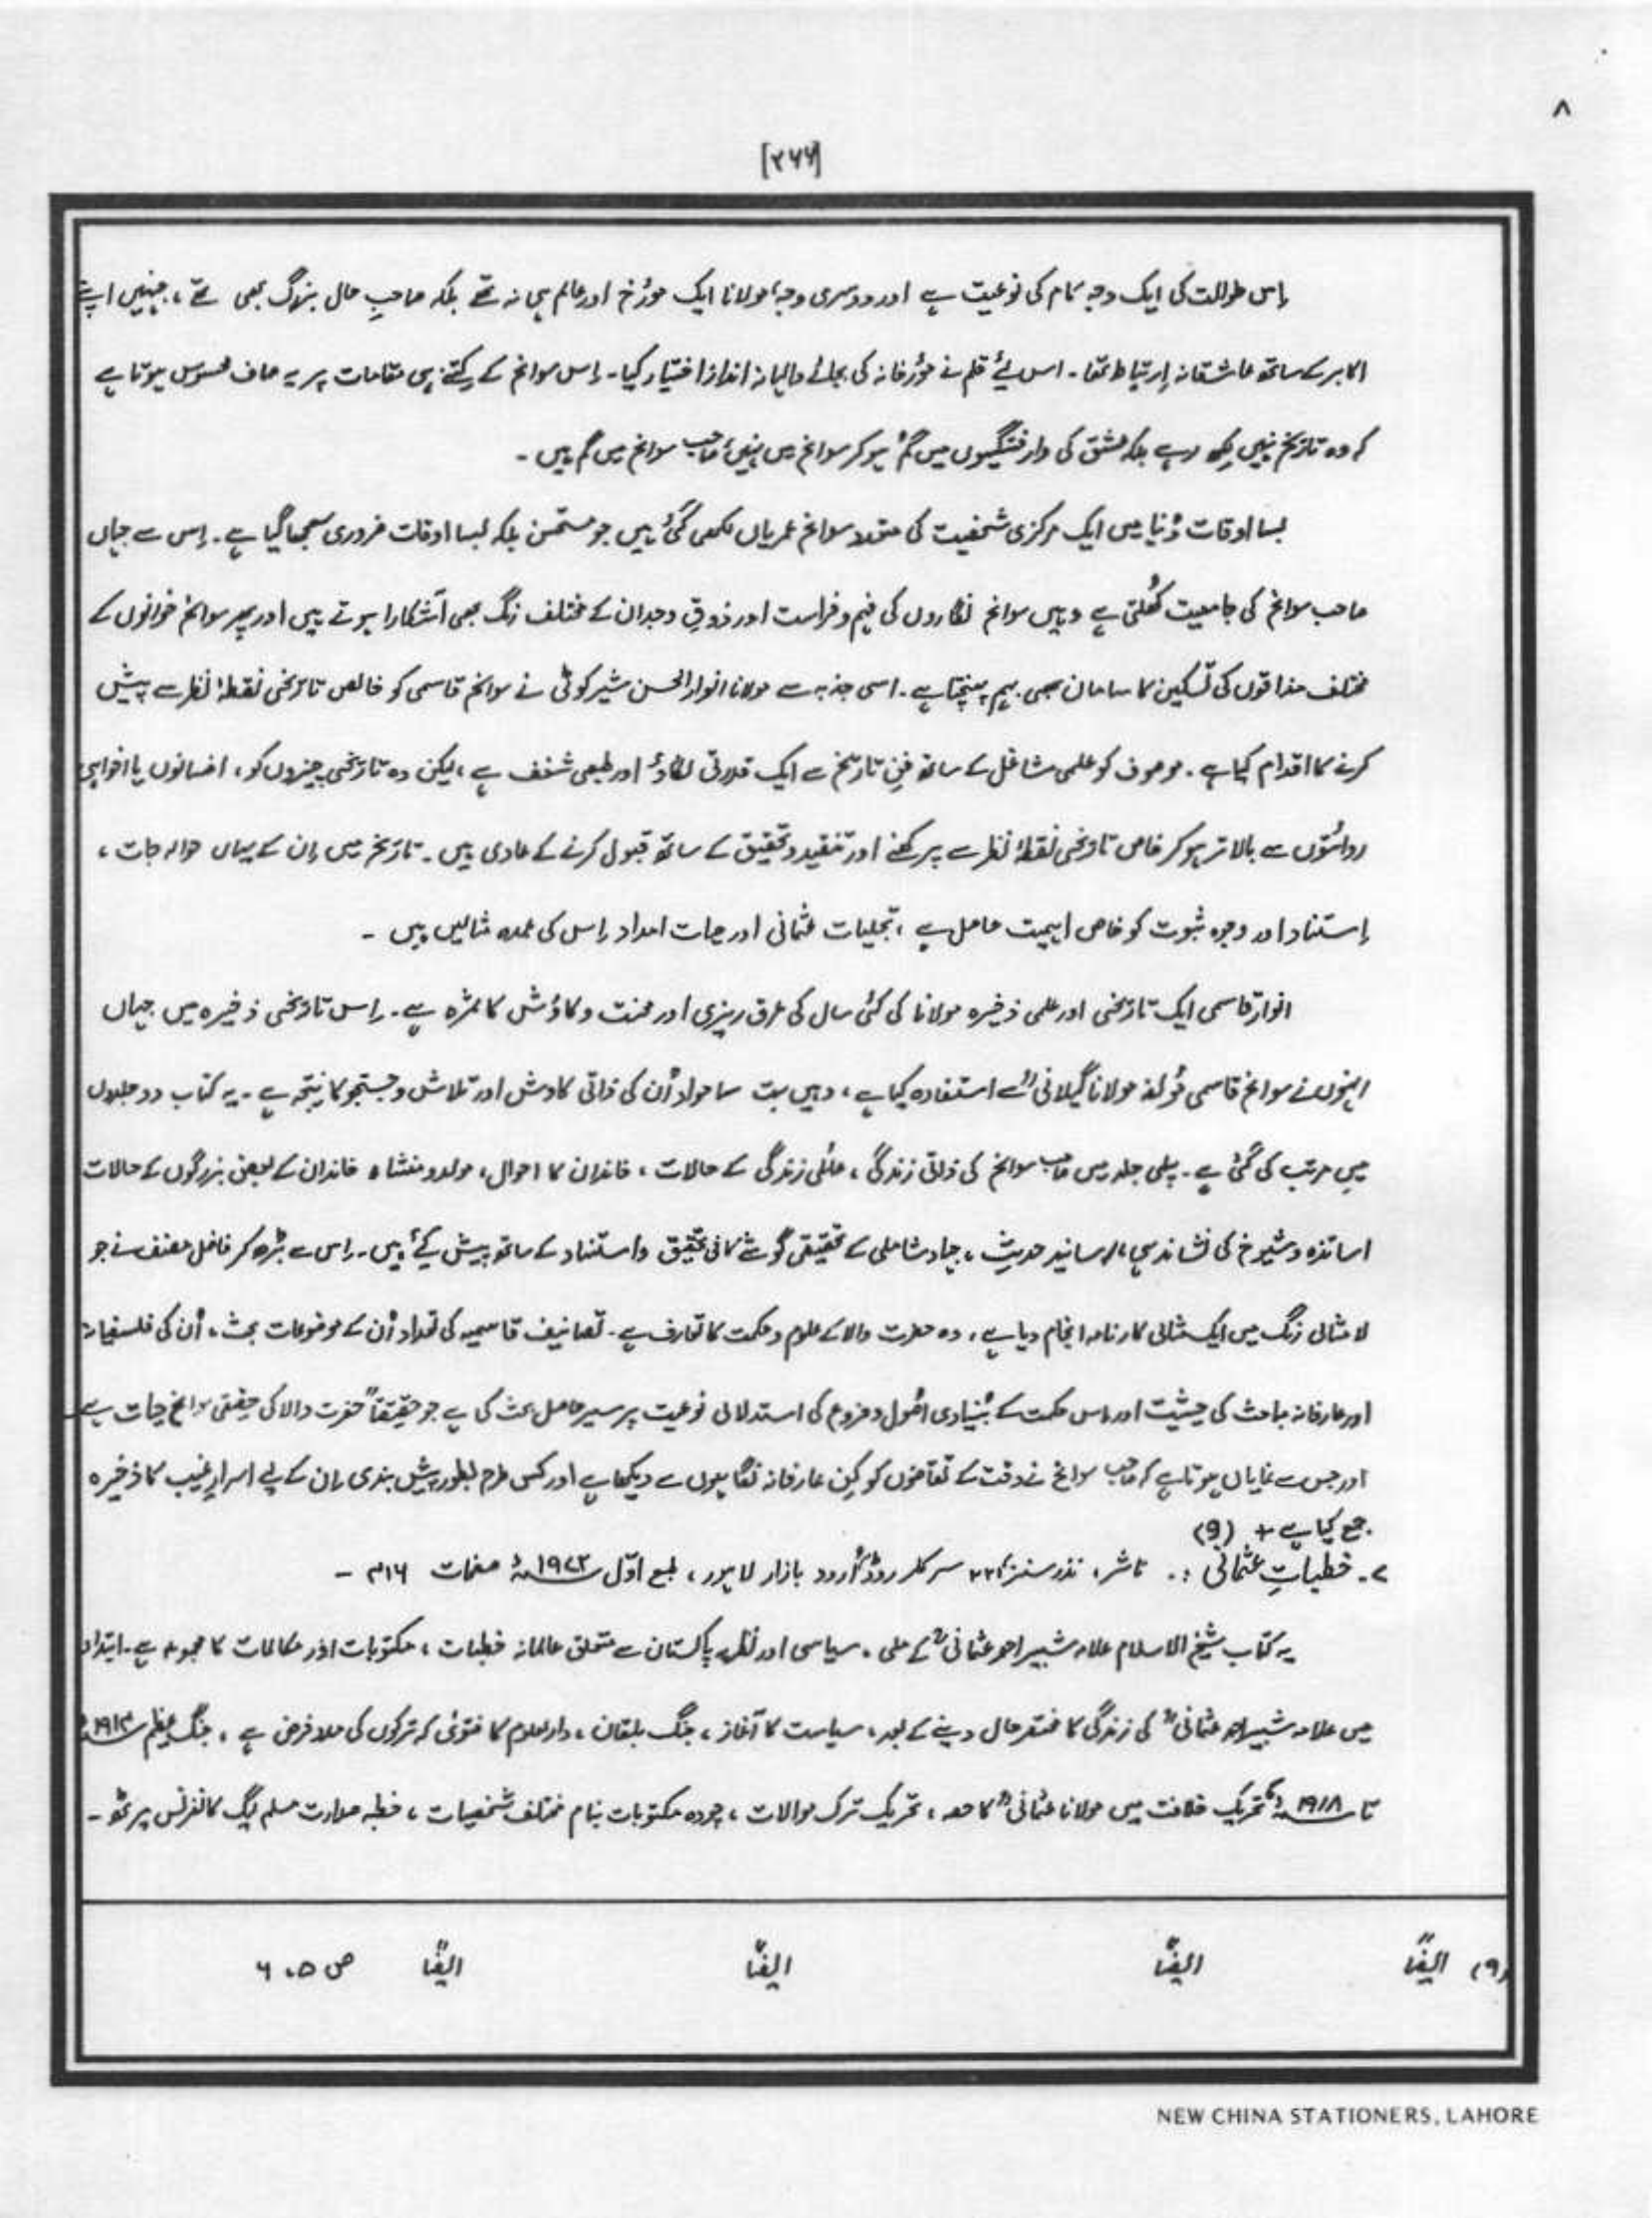 ۸
[۲۶۶]
اِس طوالت کی ایک وجہ کام کی نوعیت ہے اور دوسری وجہ، مولانا ایک مورٔخ اور عالم ہی نہ تھے بلکہ صاحبِ حال بزرگ بھی تھے، جنہیں اپنے
اکابر کے ساتھ عاشقانہ اِرتباط تھا۔ اس لیٔے قلم نے مؤرخانہ کی بجائے والہانہ انداز اختیار کیا۔ اِس سوانح کے کِتنے ہی مقامات پر یہ صاف محسوس ہوتا ہے
کہ وہ تاریخ نہیں لِکھ رہے بلکہ عشق کی وارفتگیوں میں گُم ہو کر سوانح میں نہیں، صاحب سوانح میں گم ہیں ۔
بسا اوقات دُنیا میں ایک مرکزی شخصیت کی متعدد سوانح عمریاں لکھی گئی ہیں جو مستحسن بلکہ بسا اوقات ضروری سمجھا گیا ہے۔ اِس سے جہاں
صاحب سوانح کی جامعیت کھُلتی ہے وہیں سوانح نگاروں کی فہم و فراست اور ذوقِ وجدان کے مختلف رنگ بھی آشکارا ہوتے ہیں اور پھر سوانح خوانوں کے
مختلف مذاقوں کی تسکین کا سامان بھی بہم پہنچتا ہے۔ اسی جذبہ سے مولانا انوار الحسن شیر کوٹی نے سوانح قاسمی کو خالص تاریخی نقطۂ نظر سے پیش
کرنے کا اقدام کیا ہے۔ موصوف کو علمی مشاغل کے ساتھ فنِ تاریخ سے ایک قدرتی لگاؤ اور طبعی شغف ہے، لیکن وہ تاریخی چیزوں کو، افسانوں یا افواہی
روائتوں سے بالاتر ہو کر خاص تاریخی نقطۂ نظر سے پرکھنے اور تنقید و تحقیق کے ساتھ قبول کرنے کے عادی ہیں۔ تاریخ میں اِن کے یہاں حوالہ جات،
اِستناد اور وجوہ ثبوت کو خاص اہمیت حاصل ہے، تجلیات عثمانی اور حیات امداد اِس کی عمدہ مثالیں ہیں ۔
انوارِ قاسمی ایک تاریخی اور علمی ذخیرہ مولانا کی کئی سال کی عرق ریزی اور محنت و کاوش کا ثمرہ ہے۔ اِس تاریخی ذخیرہ میں جہاں
انہوں نے سوانح قاسمی مؤلفہ مولانا گیلانیؒ سے استفادہ کیا ہے، وہیں بہت سا مواد اُن کی ذاتی کاوش اور تلاش و جستجو کا نتیجہ ہے۔ یہ کتاب دو جلدوں
میں مرتب کی گئی ہے۔ پہلی جلد میں صاحب سوانح کی ذاتی زندگی، عائلی زندگی کے حالات، خاندان کا احوال، مولد و منشاء خاندان کے بعض بزرگوں کے حالات
اساتذہ و شیوخ کی نشاندہی، اسانید حدیث، جہاد شاملی کے تحقیقی گوشے کافی تحقیق و استناد کے ساتھ پیش کیٔے ہیں۔ اِس سے بڑھ کر فاضل مصنف نے جو
لا مثالی رنگ میں ایک مثالی کارنامہ انجام دیا ہے، وہ حضرت والا کے علوم و حکمت کا تعارف ہے۔ تصانیف قاسمیہ کی تعداد اُن کے موضوعات بحث، اُن کی فلسفیانہ
اور عارفانہ مباحث کی حیثیت اور اس حکمت کے بُنیادی اصُول و فروع کی استدلالی نوعیت پر سیر حاصل بحث کی ہے جو حقیقتاً حضرت والا کی حقیقی سوانح حیات ہے
اور جس سے نمایاں ہوتا ہے کہ صاحب سوانح نے وقت کے تقاضوں کو کِن عارفانہ نگاہوں سے دیکھا ہے اور کس طرح بطور پیش بندی اِن کے لیے اسرارِ غیب کا ذخیرہ
جمع کیا ہے + (9)
۷۔ خطباتِ عثمانی :۔ ناشر، نذر سنز، ۲۲۸ سرکلر روڈ اُردو بازار لاہور، طبع اوّل ۱۹۷۲ء صفحات ۳۱۶ ۔
یہ کتاب شیخ الاسلام علامہ شبیر احمد عثمانیؒ کے ملی، سیاسی اور نظریہ پاکستان سے متعلق عالمانہ خطبات، مکتوبات اور مکالمات کا مجموعہ ہے۔ ابتداء
میں علامہ شبیر احمد عثمانیؒ کی زندگی کا مختصر حال دینے کے بعد، سیاست کا آغاز، جنگ بلقان، دارالعلوم کا فتویٰ کہ ترکوں کی مدد فرض ہے، جنگ عظیم ۱۹۱۴ء
تا ۱۹۱۸ء تحریک خلافت میں مولانا عثمانیؒ کا حصہ، تحریک ترک موالات، چودہ مکتوبات بنام مختلف شخصیات، خطبہ صدارت مسلم لیگ کانفرنس میرٹھ ۔
(۹) ایضًا ایضًا ایضًا ایضًا ص ۵، ۶
NEW CHINA STATIONERS, LAHORE